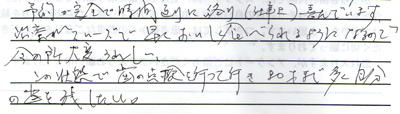 予約が完全で時間通りに終り(仕事上)喜んでいます。
治療がスムーズで早くおいしく食べられるようになるので
今の所大変うれしい
この状態で歯の点検を行って行き80才まで多く自分
の歯を残したい。